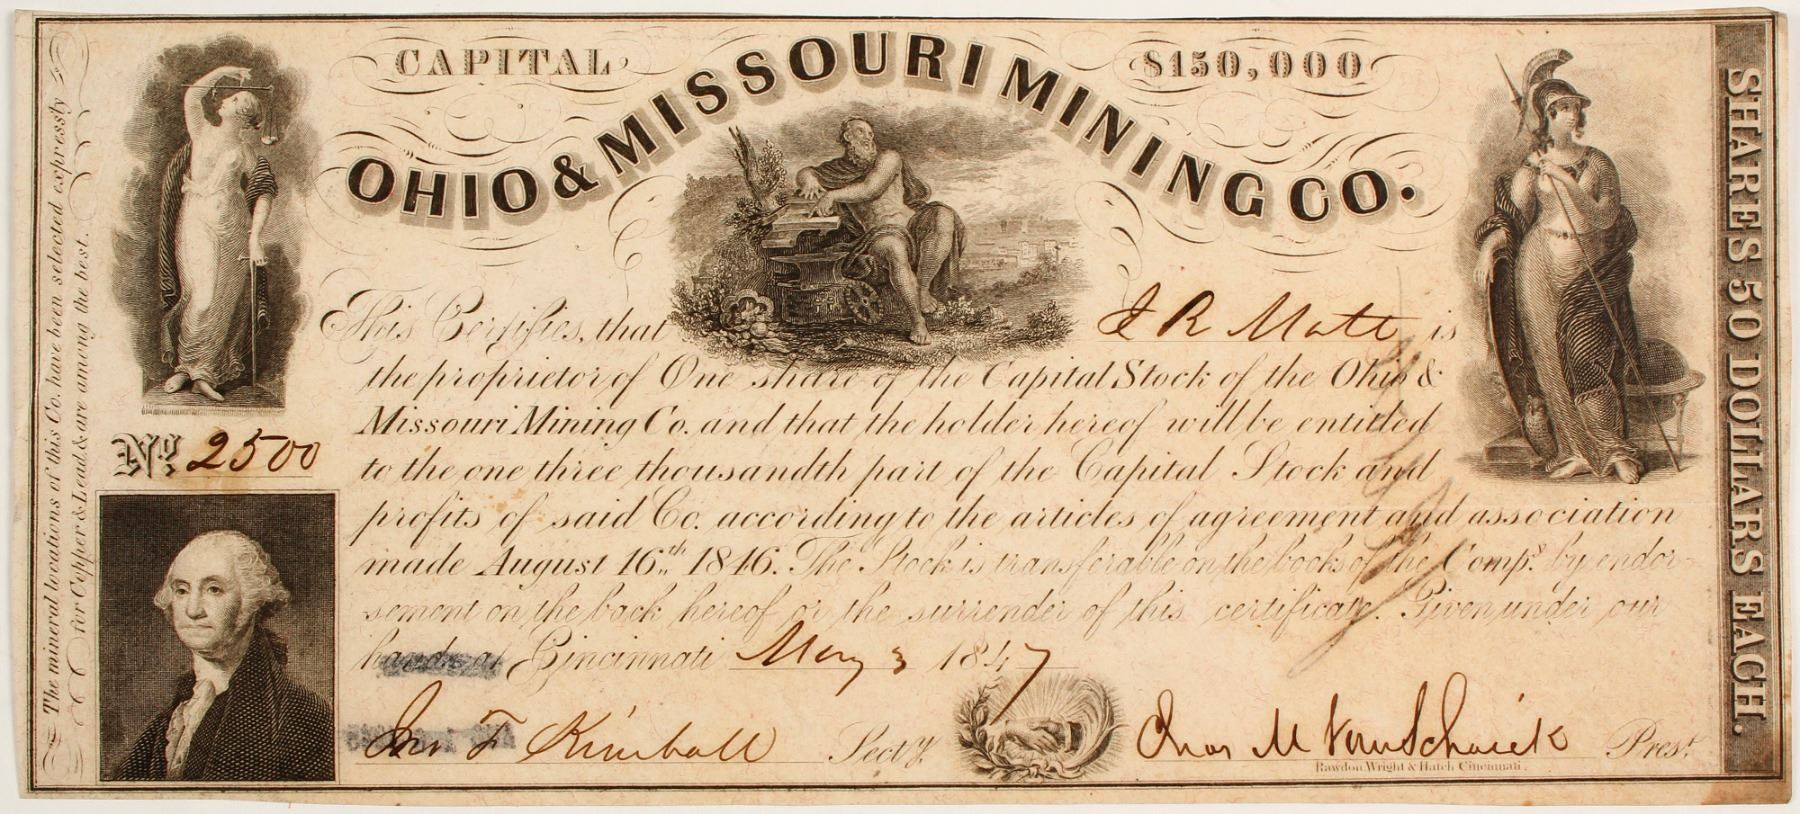 CAPITAL $150,000
OHIO & MISSOURI MINING CO.
This Certifies, that J R Matt is
the proprietor of One share of the Capital Stock of the Ohio &
Missouri Mining Co. and that the holder hereof will be entitled
to the one three thousandth part of the Capital Stock and
profits of said Co. according to the articles of agreement and association
made August 16th 1846. The Stock is transferable on the books of the Compy. by endor-
sement on the back hereof or the surrender of this certificate. Given under our
hands at Cincinnati May 3 1847
Jno F Kimball Secty. Chas M Van Schaick Prest.
Rawdon, Wright & Hatch Cincinnati.
No. 2500
The mineral locations of this Co. have been selected expressly
for Copper & Lead & are among the best.
SHARES 50 DOLLARS EACH.